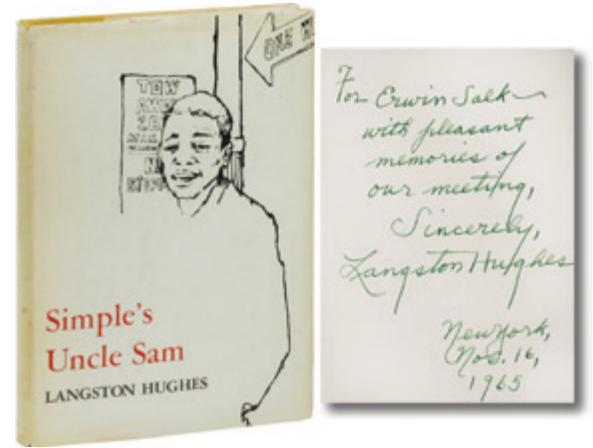 ONE W
TOW
AWAY
Simple's
Uncle Sam
LANGSTON HUGHES
For Erwin Salk—
with pleasant
memories of
our meeting,
Sincerely,
Langston Hughes
New York,
Nov. 16,
1965